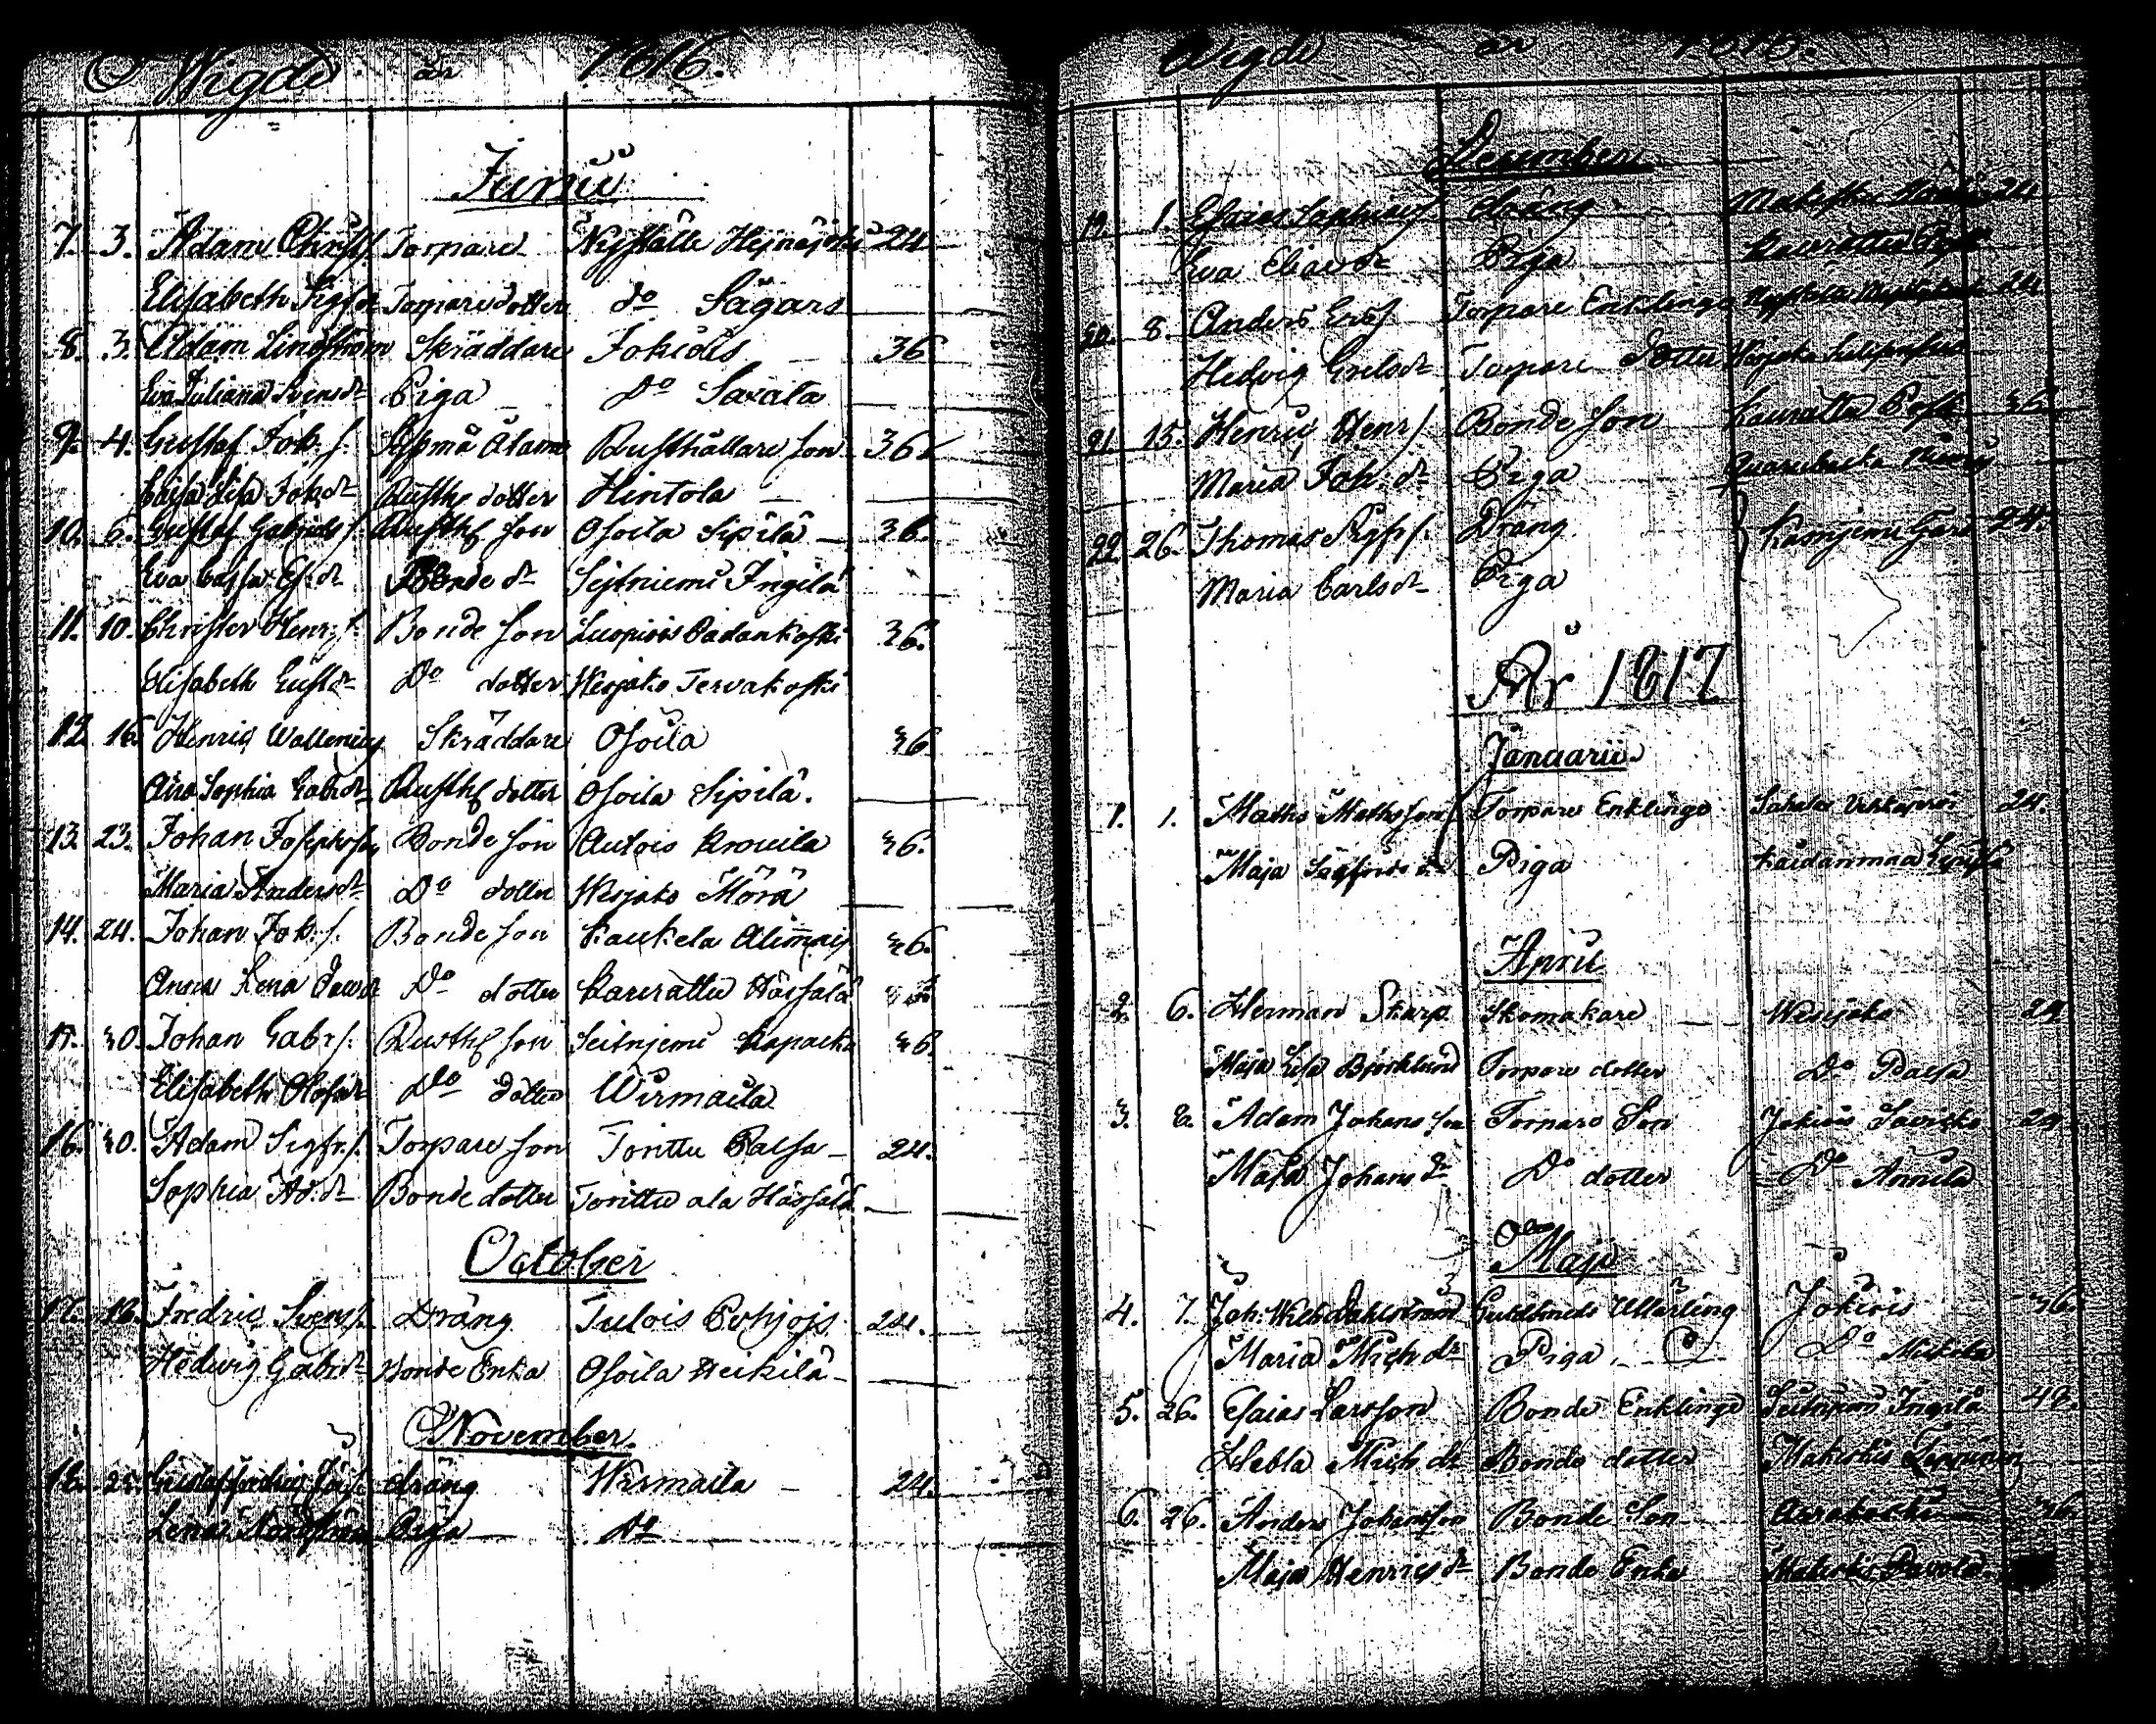 Wigde år 1816.
Junii
7. 3. Adam Christ.s. Torpare Nyställe Hejnäjoki 24
Elisabeth Sigfr.dr Torparedotter do Sågars
8. 3. Adam Lindström Skräddare Jokiois 36
Eva Juliana Svensdr Piga Do Saxala
9. 4. Gustaf Joh.s. Rusthållare son 36
Caisa Lisa Joh.dr Rusth. dotter Hintola
10. 6. Gustaf Gabriels s. Rusth. son Osoila Sipilä 36.
Eva Caisa Es.dr Bonde dr Sejtniemi Ingilä
11. 10. Christer Henr.s. Bonde son Luopiois Padankoski 36.
Elisabeth Gust.dr Do dotter Wesjako Tervakoski
12. 16. Henric Wallenius Skräddare Osoila 36
Sophia Gabr.dr Rusth. dotter Osoila Sipilä.
13. 23. Johan Josephsson Bonde son Autois Krouvila 36.
Maria Andersdr Do dotter Wesjako Mörä
14. 24. Johan Joh.s. Bonde son Kaukela Alimais 36.
Anna Lena dr Do dotter Kaurattu Hässälä
15. 30. Johan Gabr.s. Rusth. son Seitnjemi 36.
Elisabeth Olofsdr Do dotter Wirmaila
16. 30. Adam Sigfr.s. Torpare son Torittu Palsa 24.
Sophia Ad.dr Bonde dotter Torittu ala Hässälä
October
17. 18. Fredric Svens.s. Dräng Tulois Pohjois 24.
Hedwig Gabr.dr Bonde Enka Osoila Heikilä
November.
18. 25. Gustaf Fredric dräng Wirmaila 24.
Lena Piga Do
Wigde år 1816.
December
19. 1. Esaias dräng 24
Eva Eliaedr Piga Kaurattu
20. 8. Anders Ers.s. Torpare Enklinge 24
Hedvig Grels dr Torpare dotter Wesjako
21. 15. Henric Henr.s. Bonde son Kaurattu 36
Maria Joh.dr Piga
22. 26. Thomas Sigfr.s. Dräng Kasnjemi Gård 24.
Maria Carls dr Piga
År 1817
Januarii
1. 1. Maths Mathsson Torpare Enklinge 24.
Maja Sigfrids dr Piga Kaidanmaa
April
2. 6. Herman Skarp Skomakare Wesijako 24
Maja Lisa Björklund Torpare dotter Do Palsa
3. 6. Adam Johans son Torpare Son Jokiois 24
Maja Johans dr Do dotter Do Annila
Maji
4. 7. Joh. Wilh. Dahlström Jokiois 36.
Maria Mich dr Piga Do Mickola
5. 26. Esaias Larsson Bonde Enklinge Seitniemi Ingilä 48.
Hebla Mich dr Bonde dotter Makiskis
6. 26. Anders Johansson Bonde Son Arrakoski 36
Maja Henrics dr Bonde Enka Makiskis